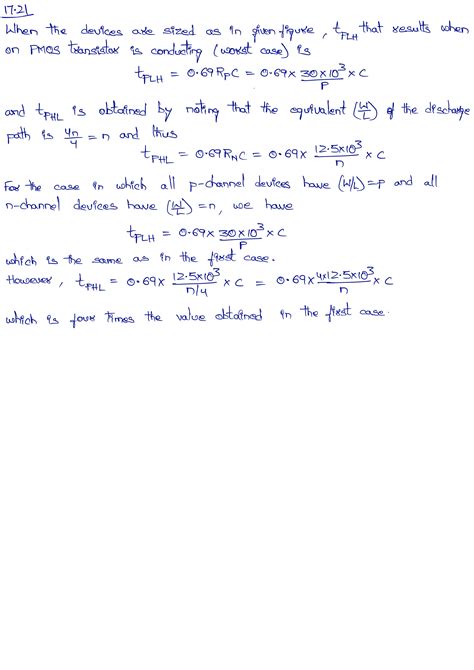 17.21
When the devices are sized as in given figure, t_PLH that results when
on PMOS transistor is conducting (worst case) is
t_PLH = 0.69 R_P C = 0.69 × (30×10³/P) × C
and t_PHL is obtained by noting that the equivalent (W/L) of the discharge
path is 4n/4 = n and thus
t_PHL = 0.69 R_N C = 0.69 × (12.5×10³/n) × C
For the case in which all p-channel devices have (W/L)=p and all
n-channel devices have (W/L)=n, we have
t_PLH = 0.69 × (30×10³/P) × C
which is the same as in the first case.
However, t_PHL = 0.69 × (12.5×10³/(n/4)) × C = 0.69 × (4×12.5×10³/n) × C
which is four times the value obtained in the first case.